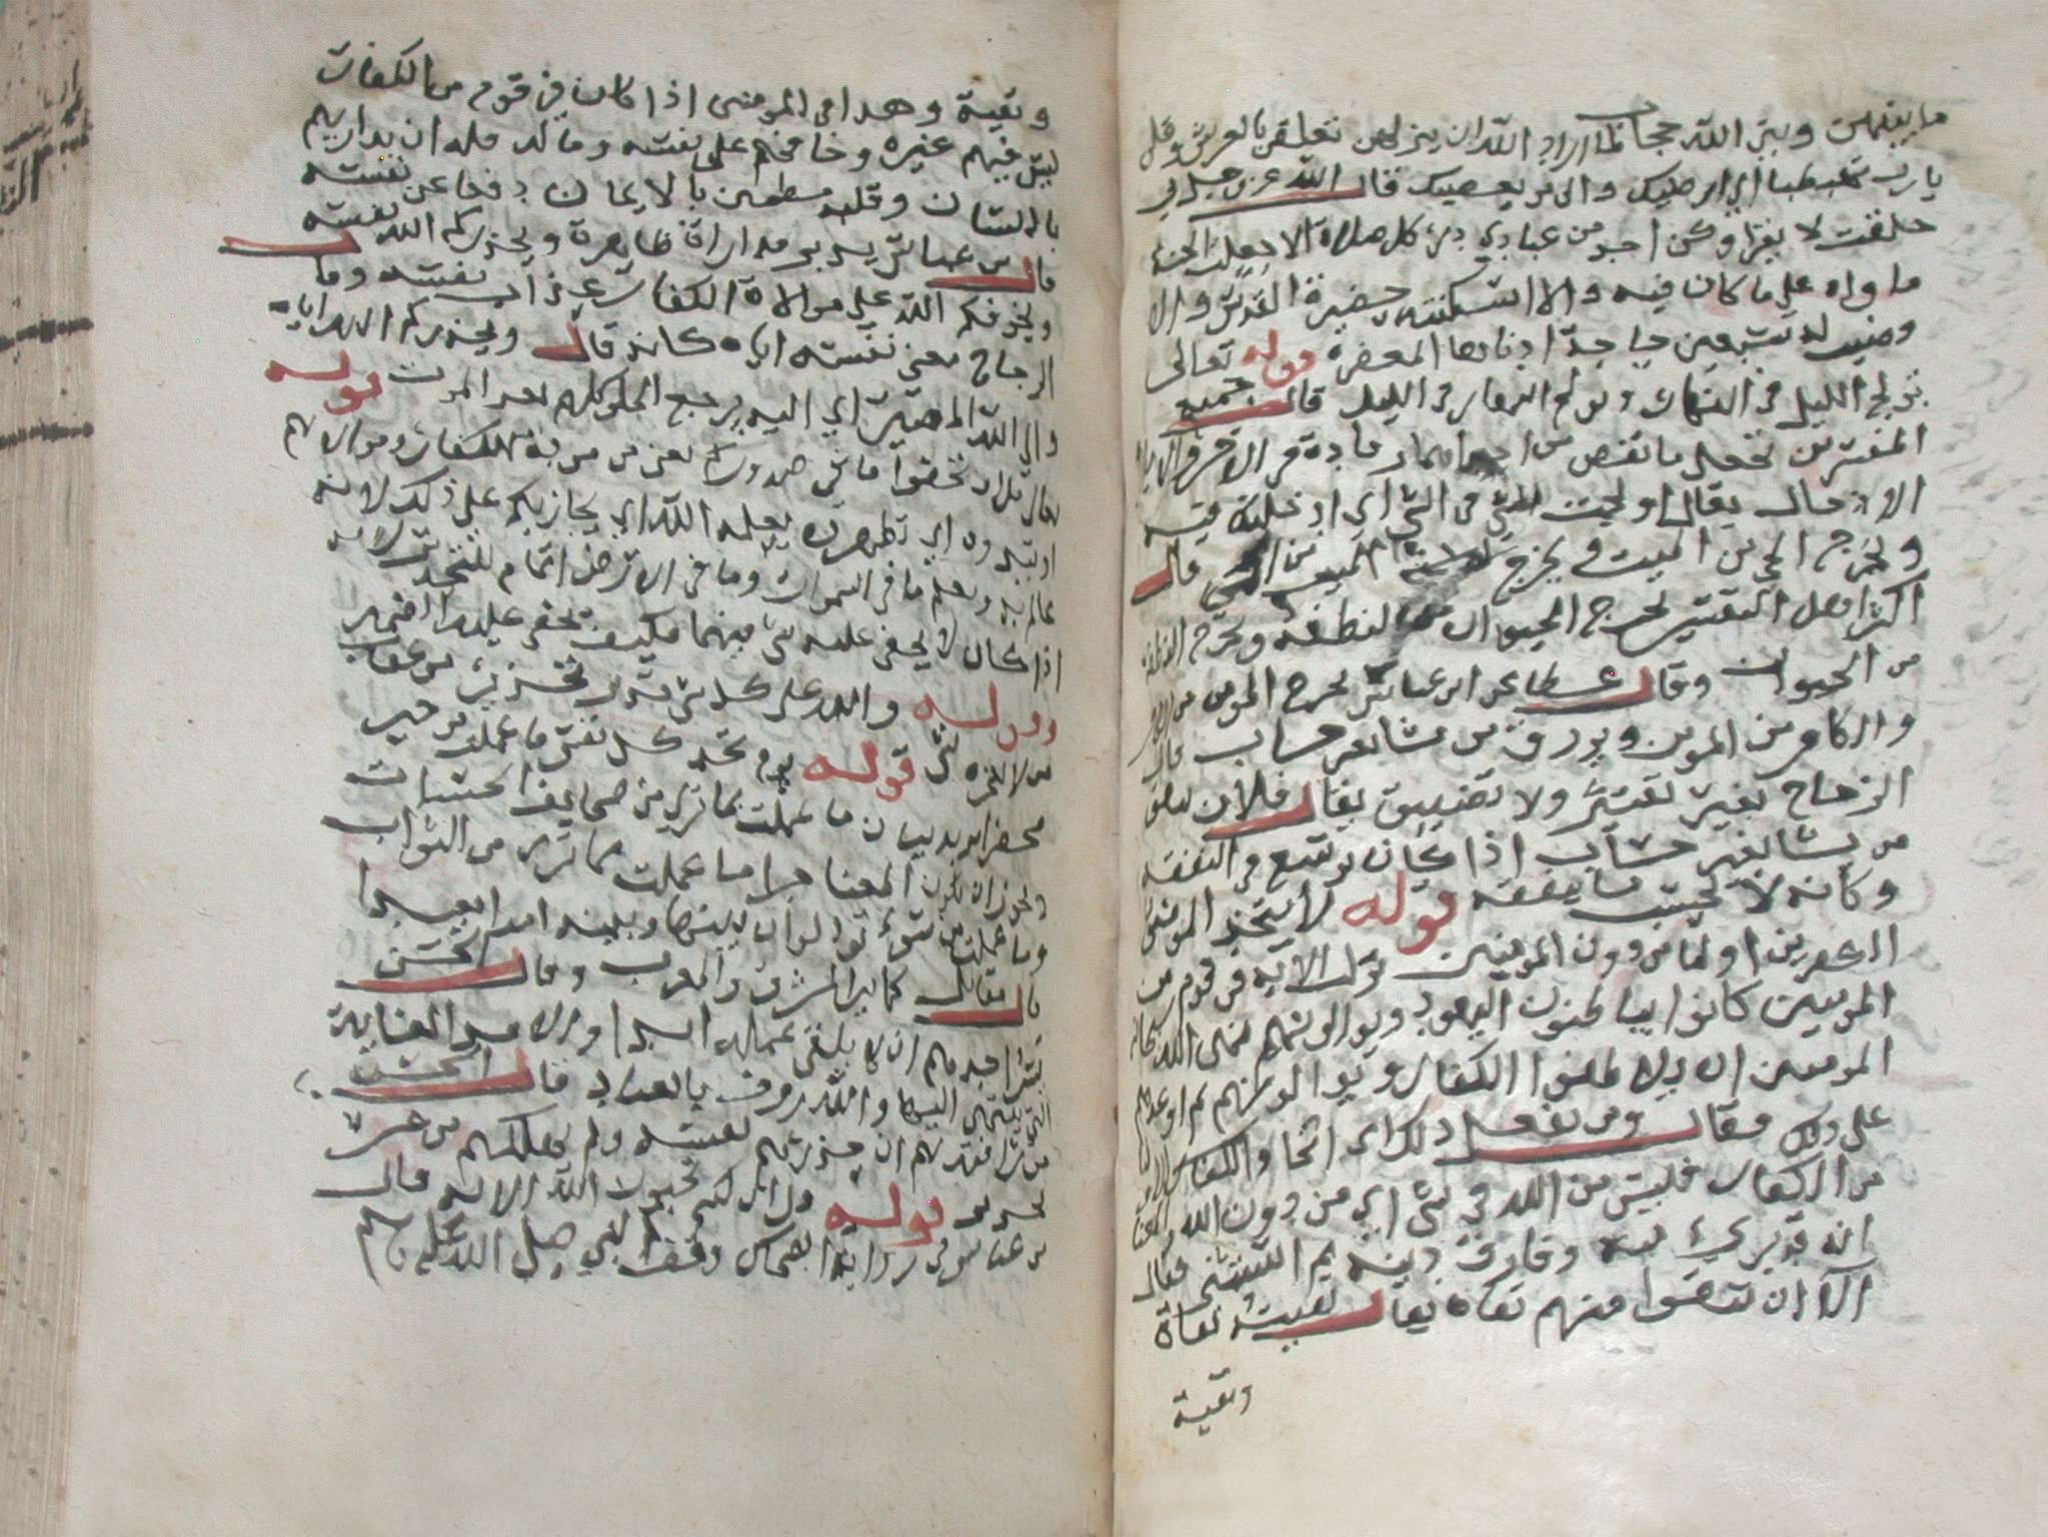 ما بينهن وبين الله حجاب لما اراد الله ان ينزلهن تعلقن بالعرش وقلن
يارب تهبطنا الى ارضك والى من يعصيك قال الله عز وجل بي
حلفت لا يقراوكن احد من عبادي دبر كل صلاة الا جعلت الجنة
ماواه على ما كان فيه والا اسكنته حضيرة القدس والا
وضيت له سبعين حاجة ادناها المغفرة قوله تعالى
تولج الليل في النهار وتولج النهار في الليل قال جميع
المفسرين تجعل ما نقص من احدهما زيادة في الاخر والايلاج
الادخال يقال اولجت الشي في الشي اي ادخلته فيه
وتخرج الحي من الميت وتخرج الميت من الحي قال
اكثر اهل التفسير تخرج الحيوان من النطفة وتخرج النطفة
من الحيوان وقال عطا عن ابن عباس تخرج المومن من الكافر
والكافر من المومن وترزق من تشا بغير حساب قال
الزجاج بغير تقتير ولا تضييق يقال فلان ينفق
من يشا بغير حساب اذا كان يوسع في النفقة
وكانه لا يحسب ما ينفقه قوله لا يتخذ المومنون
الكفرين اوليا من دون المومنين نزلت الاية في قوم من
المومنين كانوا يباطنون اليهود ويوالونهم فنهى الله سبحانه
المومنين ان يلاطفوا الكفار ويوالونهم ثم اوعدهم
على ذلك فقال ومن يفعل ذلك اي اتخاذ الكفار اوليا
من الكفار فليس من الله في شي اي من دون الله المعنا
انه قد بري منه وفارق دينه ثم استثنى فقال
الا ان تتقوا منهم تقاة يقال تقيت تقاة
وتقية
وتقية وهذا في المومنين اذا كان في قوم من الكفار
ليس فيهم غيره وخافهم على نفسه وماله فله ان يداريهم
باللسان وقلبه مطمئن بالايمان دفعا عن نفسه
قال بن عباس يريد مداراة ظاهرة ويحذركم الله نفسه
ويخوفكم الله على موالاة الكفار عذاب نفسه وقال
الزجاج معنى نفسه اياه كانه قال ويحذركم الله اياه
والى الله المصير اي اليه يرجع الخلق كلهم بعد الموت قوله
تعالى قل ان تخفوا ما في صدوركم يعني من مودة الكفار وموالاتهم
او تبدوه اي تظهروه يعلمه الله اي يجازيكم على ذلك لانه
عالم به ويعلم ما في السموات وما في الارض اتمام للتحذير لانه
اذا كان لا يخفى عليه شي فيهما فكيف يخفى عليه الضمير
وقوله والله على كل شي قدير تحذير من عقاب
من لا يعجزه شي قوله يوم تجد كل نفس ما عملت من خير
محضرا يريد بيان ما عملت بما ترى من صحايف الحسنات
ويجوز ان يكون المعنا جزا ما عملت مما ترى من الثواب
وما عملت من سوء تود لو ان بينها وبينه امدا بعيدا
قال مقاتل كما بين المشرق والمغرب وقال الحسن
يسر احدهم ان لا يلقى عمله ابدا والامد الغاية
التي ينتهى اليها والله روف بالعباد قال الحسن
من رافته بهم ان حذرهم نفسه ولم يهلكهم من غير
تحذير قوله قل ان كنتم تحبون الله الاية قال
بن عباس في رواية الضحاك وقف النبي صلى الله عليه وسلم